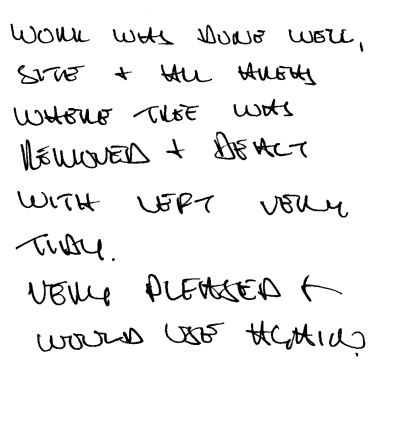 WORK WAS DONE WELL,
SITE + ALL AREAS
WHERE TREE WAS
REMOVED + DEALT
WITH LEFT VERY
TIDY.
VERY PLEASED +
WOULD USE AGAIN.